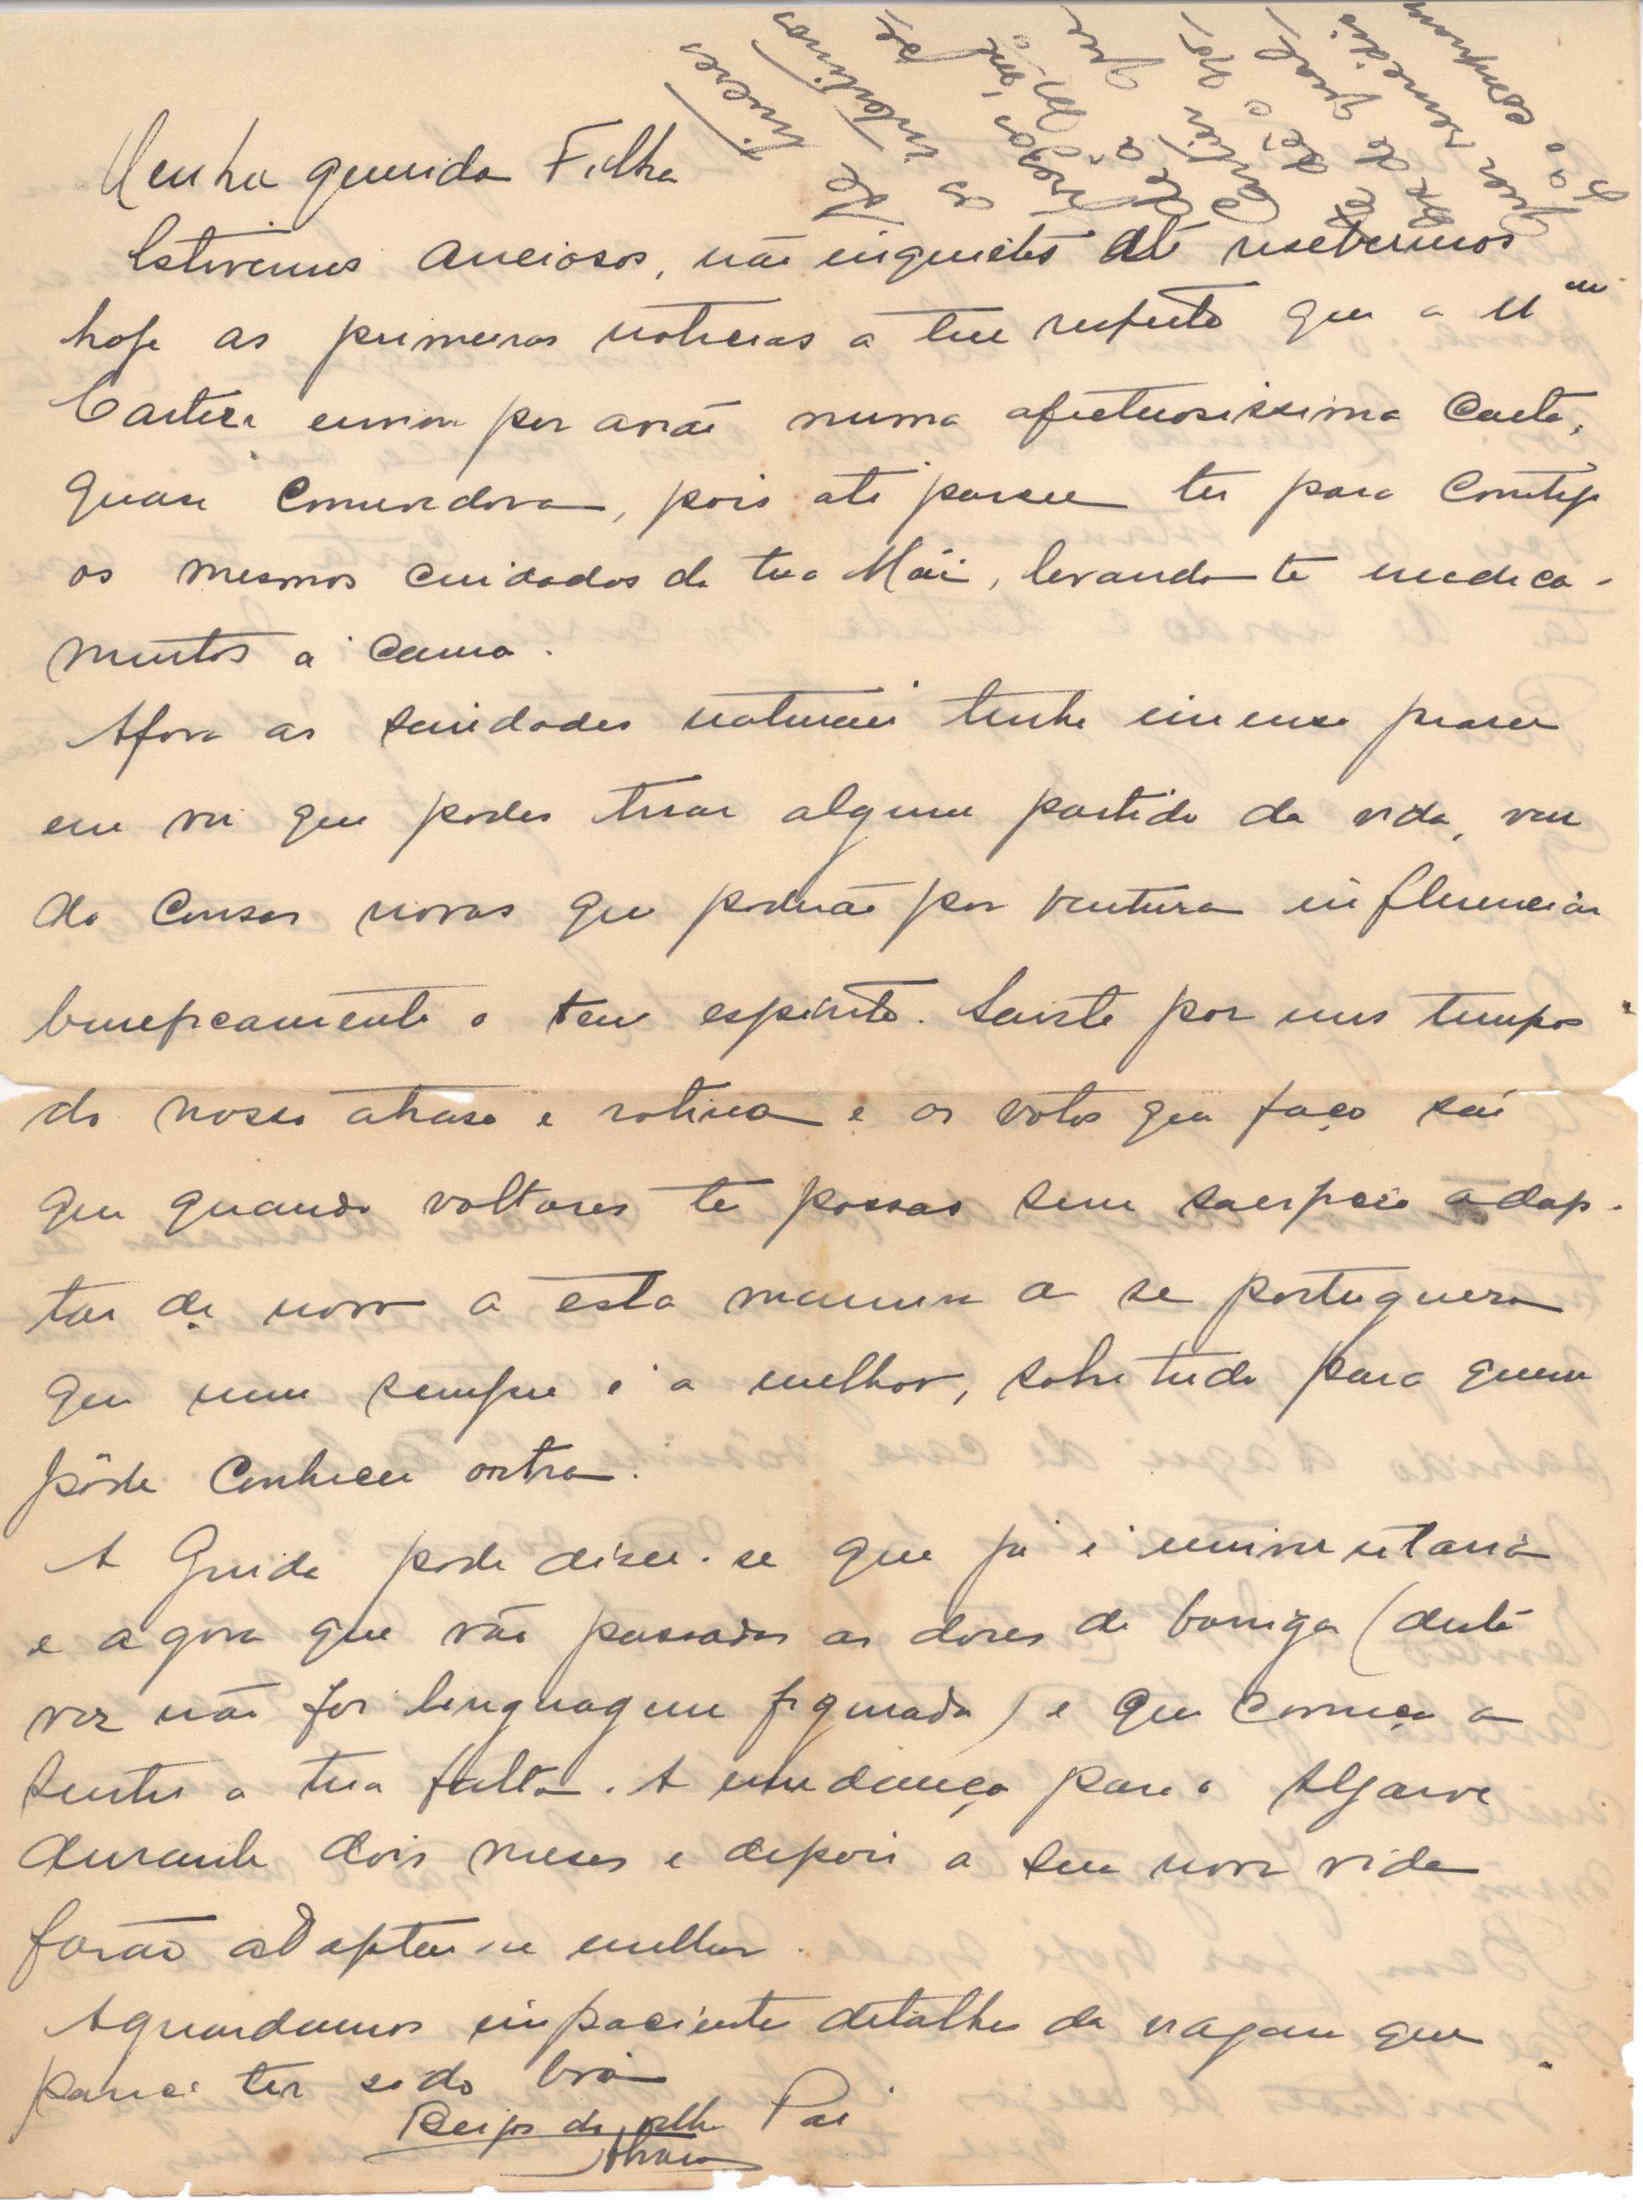 Minha querida Filha
Estivemos anciosos, não inquietos até recebermos
hoje as primeiras noticias a teu respeito que a Mme
Cartier enviou por avião numa afectuosissima carta,
quasi comovedora, pois até parece ter para comtigo
os mesmos cuidados da tua Mãi, levando-te medica-
mentos á cama.
Afora as saudades naturais tenho imenso praser
em vêr que podes tirar algum partido da vida, ven
do cousas novas que poderão por ventura influenciar
beneficamente o teu espirito. Saiste por uns tempos
do nosso atraso e rotina e os votos que faço são
que quando voltares te possas sem sacrificio adap-
tar de novo a esta maneira de ser portuguesa
que nem sempre é a melhor, sobretudo para quem
pôde conhecer outra.
A Guida pode diser-se que já é universitaria
e agora que vão passadas as dores de barriga (desta
vez não foi linguagem figurada) é que começa a
sentir a tua falta. A mudança para o Algarve
durante dois meses e depois a sua nova vida
farão adaptar-se melhor.
Aguardamos impacientes detalhes da viagem que
parece ter sido boa
Beijos do velho Pai
Se tiveres
os intestinos
presos,
á Mme
Cartier que
te dê
qual
quer remedio